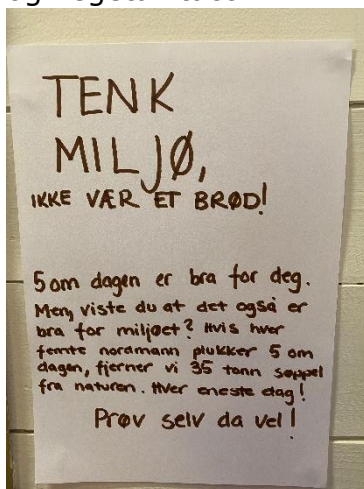 TENK
MILJØ,
IKKE VÆR ET BRØD!
5 om dagen er bra for deg.
Men, viste du at det også er
bra for miljøet? Hvis hver
femte nordmann plukker 5 om
dagen, fjerner vi 35 tonn søppel
fra naturen. Hver eneste dag!
Prøv selv da vel!